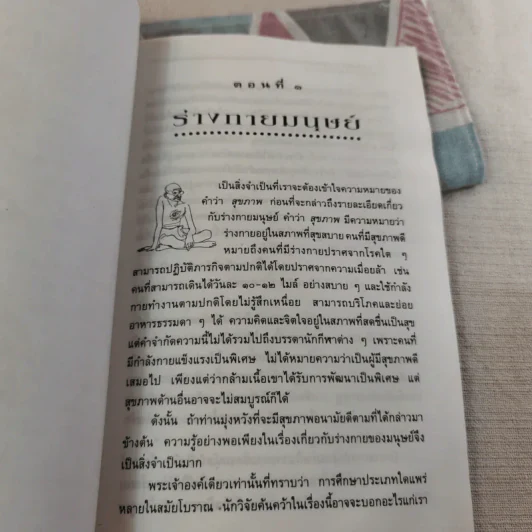 ตอนที่ ๑
ร่างกายมนุษย์
เป็นสิ่งจำเป็นที่เราจะต้องเข้าใจความหมายของ
คำว่า สุขภาพ ก่อนที่จะกล่าวถึงรายละเอียดเกี่ยว
กับร่างกายมนุษย์ คำว่า สุขภาพ มีความหมายว่า
ร่างกายอยู่ในสภาพที่สุขสบาย คนที่มีสุขภาพดี
หมายถึงคนที่มีร่างกายปราศจากโรคใด ๆ
สามารถปฏิบัติภารกิจตามปกติได้โดยปราศจากความเมื่อยล้า เช่น
คนที่สามารถเดินได้วันละ ๑๐-๑๒ ไมล์ อย่างสบาย ๆ และใช้กำลัง
กายทำงานตามปกติโดยไม่รู้สึกเหนื่อย สามารถบริโภคและย่อย
อาหารธรรมดา ๆ ได้ ความคิดและจิตใจอยู่ในสภาพที่สดชื่นเป็นสุข
แต่คำจำกัดความนี้ไม่ได้รวมไปถึงบรรดานักกีฬาต่าง ๆ เพราะคนที่
มีกำลังกายแข็งแรงเป็นพิเศษ ไม่ได้หมายความว่าเป็นผู้มีสุขภาพดี
เสมอไป เพียงแต่ว่ากล้ามเนื้อเขาได้รับการพัฒนาเป็นพิเศษ แต่
สุขภาพด้านอื่นอาจจะไม่สมบูรณ์ก็ได้
ดังนั้น ถ้าท่านมุ่งหวังที่จะมีสุขภาพอนามัยดีตามที่ได้กล่าวมา
ข้างต้น ความรู้อย่างพอเพียงในเรื่องเกี่ยวกับร่างกายของมนุษย์จึง
เป็นสิ่งจำเป็นมาก
พระเจ้าองค์เดียวเท่านั้นที่ทราบว่า การศึกษาประเภทใดแพร่
หลายในสมัยโบราณ นักวิจัยค้นคว้าในเรื่องนี้อาจจะบอกอะไรแก่เรา